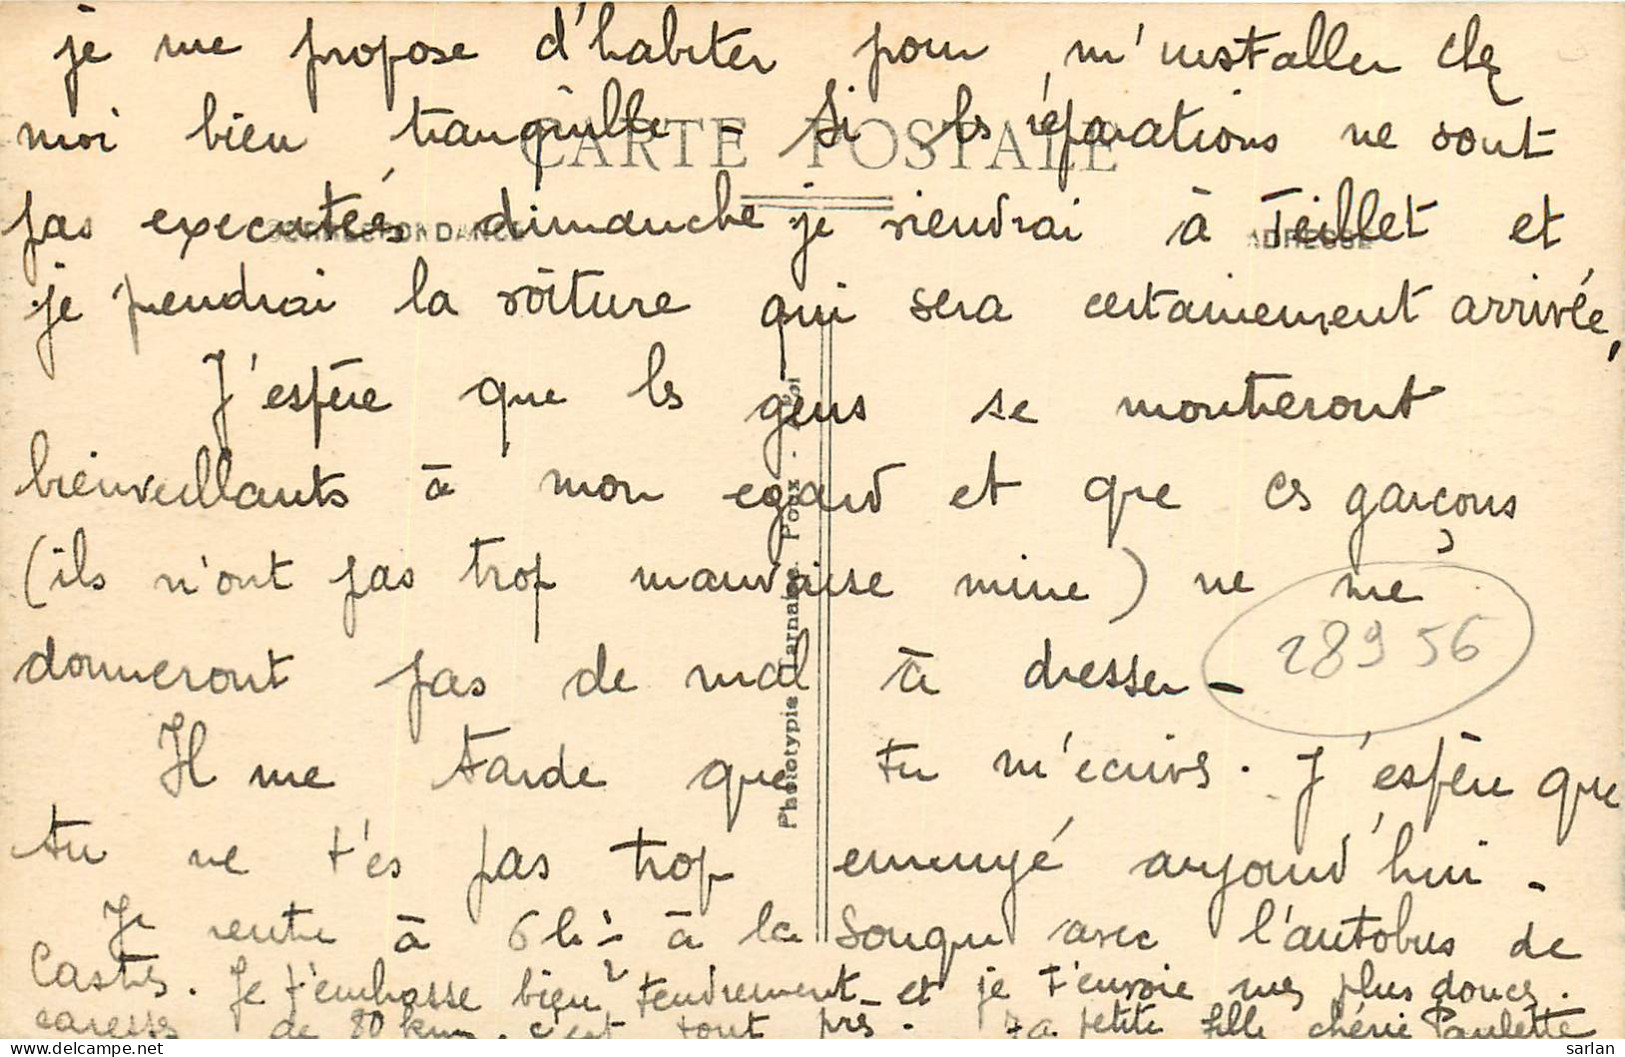 je me propose d'habiter pour m'installer chez
moi bien tranquille - Si les réparations ne sont
CARTE POSTALE
pas executées dimanche je viendrai à Teillet et
CORRESPONDANCE
ADRESSE
je prendrai la voiture qui sera certainement arrivée,
J'espère que les gens se montreront
bienveillants à mon egard et que ces garçons
(ils n'ont pas trop mauvaise mine) ne me
donneront pas de mal à dresser -
28956
Il me tarde que tu m'écrives. J'espère que
tu ne t'es pas trop ennuyé aujourd'hui -
Je rentre à 6h 1/2 à la Souque avec l'autobus de
Castres. Je t'embrasse bien tendrement - et je t'envoie mes plus douces
caresses de 80 km. c'est tout près. Ta petite fille chérie Paulette
Phototypie Tarnaise. Poux - Albi
sarlan